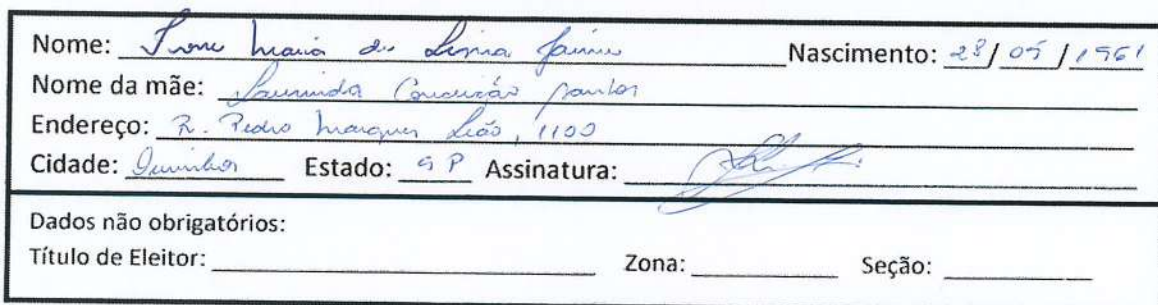 Nome: Maria de Nascimento: 23/05/1961
Nome da mãe: Conceição Santos
Endereço: R. Pedro Marques Leão, 1100
Cidade: Ourinhos Estado: SP Assinatura:
Dados não obrigatórios:
Título de Eleitor: Zona: Seção: